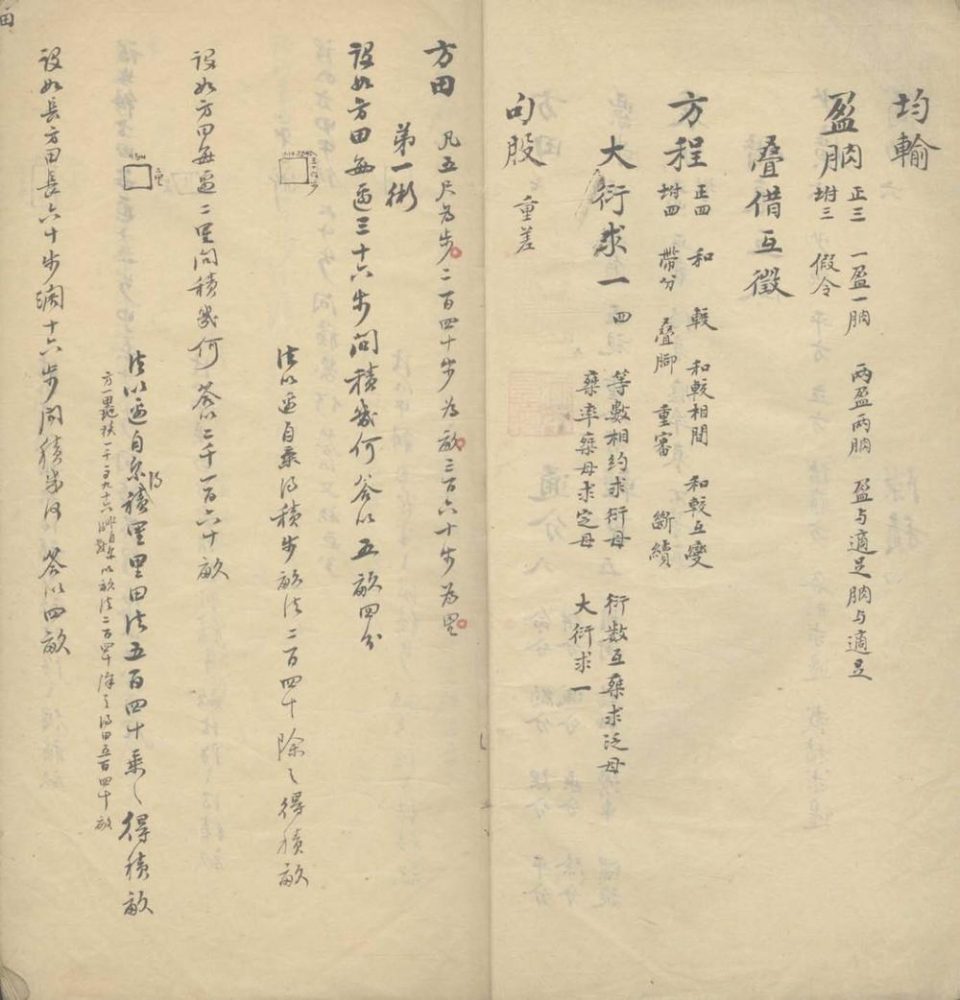 均輸
盈朒 正三 一盈一朒 兩盈兩朒 盈与適足 朒与適足
坿三 假令
疊借互徵
方程 正四 和 較 和較相間 和較互變
坿四 帶分 疊脚 重審 斷續
大衍求一 四 等數相約求衍母 衍数互乘求泛母
乘率乘母求定母 大衍求一
句股 重差
方田 凡五尺为步 二百四十步为畝 三百六十步为里
第一術
設如方田每邊三十六步問積幾何 答以五畝四分
法以邊自乘得積步畝法二百四十除之得積畝
設如方田每邊二里問積幾何 答以二千一百六十畝
法以邊自乘得積里里田法五百四十乘之得積畝
方一里 自乘 以畝法二百四十除之得田五百四十畝
設如長方田長六十步濶十六步問積幾何 答以四畝